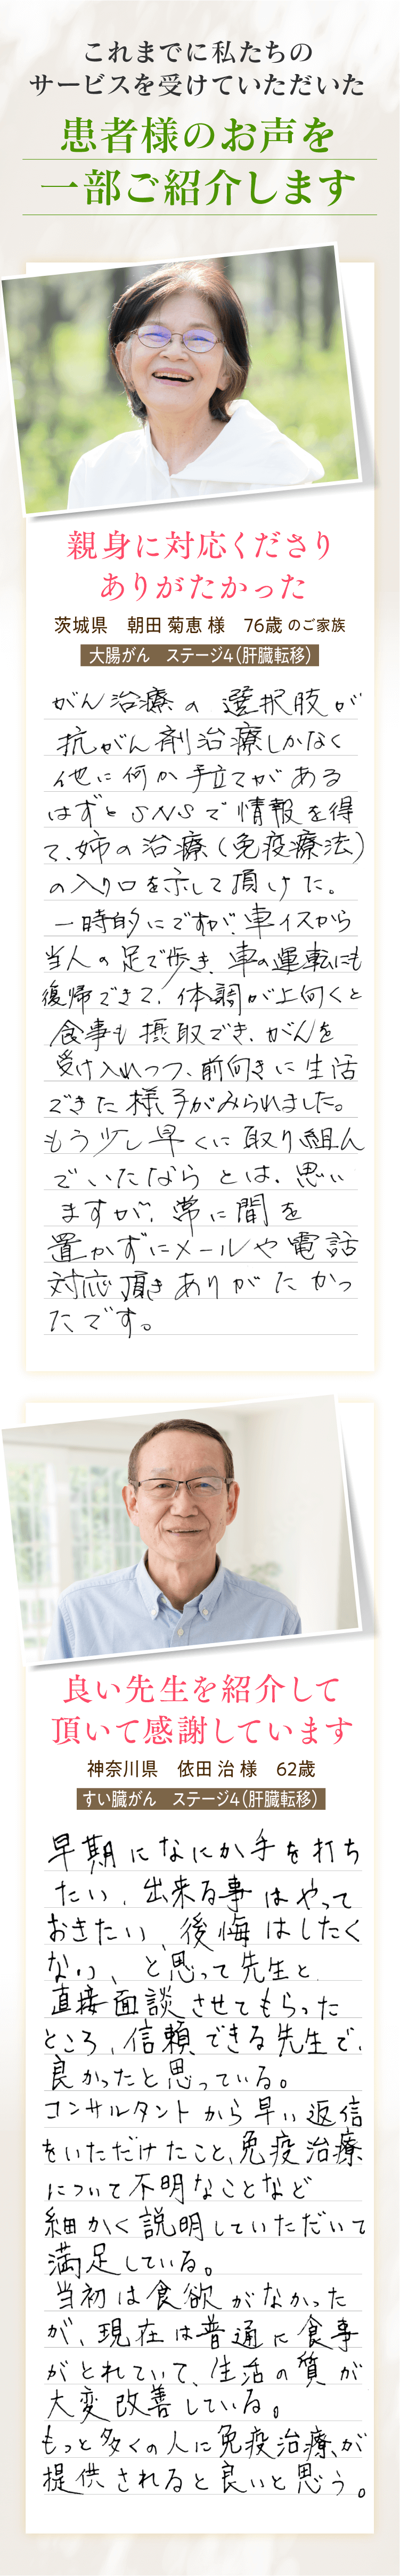 これまでに私たちの
サービスを受けていただいた
患者様のお声を
一部ご紹介します
親身に対応くださり
ありがたかった
茨城県　朝田 菊恵 様　76歳 のご家族
大腸がん　ステージ4（肝臓転移）
がん治療の選択肢が
抗がん剤治療しかなく
他に何か手立てがある
はずとSNSで情報を得
て、姉の治療（免疫療法）
の入り口を示して頂けた。
一時的にですが、車イスから
当人の足で歩き、車の運転にも
復帰できて、体調が上向くと
食事も摂取でき、がんを
受け入れつつ、前向きに生活
できた様子がみられました。
もう少し早くに取り組ん
でいたならとは、思い
ますが、常に間を
置かずにメールや電話
対応頂きありがたかっ
たです。
良い先生を紹介して
頂いて感謝しています
神奈川県　依田 治 様　62歳
すい臓がん　ステージ4（肝臓転移）
早期になにか手を打ち
たい、出来る事はやって
おきたい、後悔はしたく
ない、と思って先生と
直接面談させてもらった
ところ、信頼できる先生で、
良かったと思っている。
コンサルタントから早い返信
をいただけたこと、免疫治療
について不明なことなど
細かく説明していただいて
満足している。
当初は食欲がなかった
が、現在は普通に食事
がとれていて、生活の質が
大変改善している。
もっと多くの人に免疫治療、が
提供されると良いと思う。